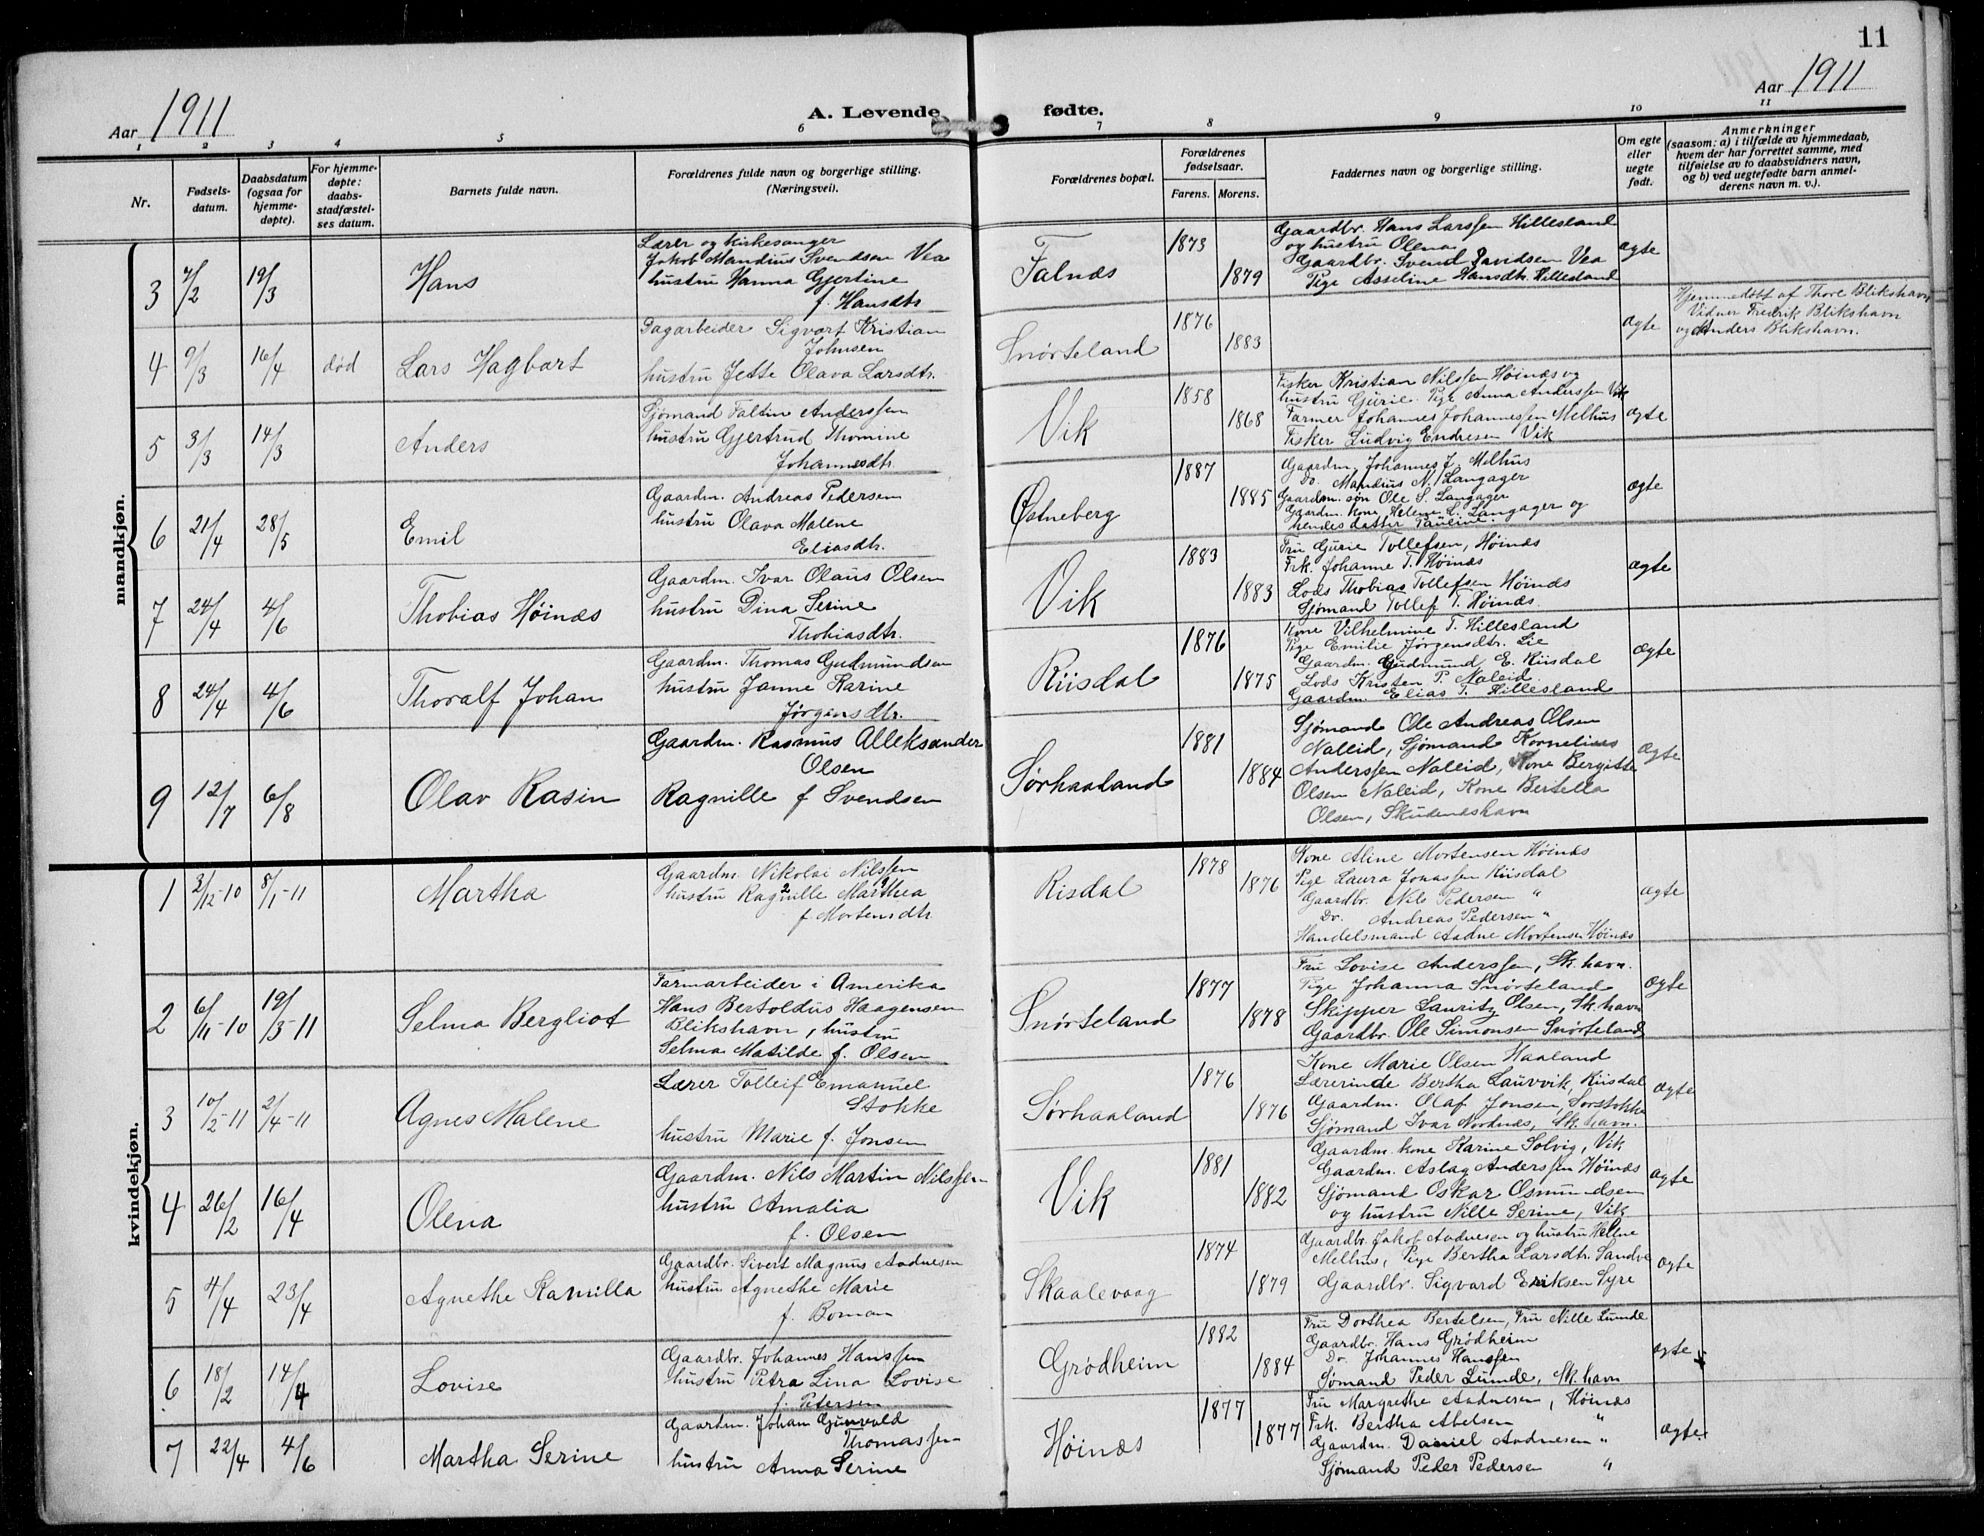 11
Aar 1911
A. Levende fødte.
Aar 1911
1 2 3 4 5 6 7 8 9 10 11
Nr.
Fødsels-datum.
Daabsdatum (ogsaa for hjemme-døpte).
For hjemme-døpte: daabs-stadfæstel-ses datum.
Barnets fulde navn.
Forældrenes fulde navn og borgerlige stilling.
(Næringsvei).
Forældrenes bopæl.
Forældrenes fødselsaar.
Farens. Morens.
Faddernes navn og borgerlige stilling.
Om egte eller uegte født.
Anmerkninger
(saasom: a) i tilfælde av hjemmedaab,
hvem der har forrettet samme, med
tilføielse av to daabsvidners navn,
og b) ved uegtefødte barn anmel-
derens navn m. v.).
mandkjøn.
3 7/2 19/3 Hans
Lærer og kirkesanger
Jakob Mandius Svendsen Vea
hustru Hanna Gjertine
f. Hansdtr
Falnæs 1873 1879
Gaardbr. Hans Larssen Hillesland
og hustru Olena
Gaardbr. Svend Davidsen Vea
Pige Asseline Hansdtr. Hillesland
ægte
4 9/3 16/4 død Lars Hagbart
Dagarbeider Sigvart Kristian
Johnsen
hustru Jette Olava Larsdtr.
Snørteland 1876 1883
ægte
Hjemmedøbt af Thore Blikshavn
Vidner Fredrik Blikshavn
og Anders Blikshavn.
5 3/3 14/3 Anders
Sjømand Faltin Anderssen
hustru Gjertrud Thomine
Johannesdtr.
Vik 1858 1868
Fisker Kristian Nilssen Høinæs og
hustru Gurie. Pige Anna Anderssen Vik
Farmer Johannes Johannessen Melhus
Fisker Ludvig Endresen Vik
ægte
6 21/4 28/5 Emil
Gaardm. Andreas Pedersen
hustru Olava Malene
Eliasdtr.
Østneberg 1887 1885
Gaardm. Johannes J. Melhus
Do. Mandius N. Langager
Gaardm. søn Ole S. Langager
Gaardm. kone Helene L. Langager og
hendes datter Pauline.
ægte
7 24/4 4/6 Thobias Høinæs
Gaardm. Ivar Olaus Olsen
hustru Dina Serine
Thobiasdtr.
Vik 1883 1883
Fru Gurie Tollefsen, Høinæs
Frk. Johanne T. Høinæs
Lods Thobias Tollefsen Høinæs
Sjømand Tollef T. Høinæs.
ægte
8 24/4 4/6 Thoralf Johan
Gaardm. Thomas Gudmundsen
hustru Janne Karine
Jørgensdtr.
Riisdal 1876 1875
Kone Vilhelmine T. Hillesland
Pige Emilie Jørgensdtr. Lie
Gaardm. Gudmund E. Riisdal
Lods Kristen P. Naleid
Gaardm. Elias T. Hillesland
ægte
9 12/7 6/8 Olav Rasin
Gaardm. Rasmus Alleksander
Olsen
Ragnille f Svendsen
Sørhaaland 1881 1884
Sjømand Ole Andreas Olsen
Nalleid, Sjømand Kornelius
Anderssen Naleid, Kone Bergitte
Olsen Naleid, Kone Bertella
Olsen, Skudeneshavn
ægte
kvindekjøn.
1 3/12-10 8/1-11 Martha
Gaardm. Nikolai Nilssen
hustru Ragnille Marthea
f. Mortensdtr
Risdal 1878 1876
Kone Aline Mortensen Høinæs
Pige Laura Jonassen Riisdal
Gaardbr. Nils Pedersen "
Do. Andreas Pedersen "
Handelsmand Aadne Mortensen Høinæs
ægte
2 6/11-10 19/3-11 Selma Bergliot
Farmarbeider i Amerika
Hans Bertoldus Haagensen
Blikshavn, hustru
Selma Matilde f. Olsen
Snørteland 1877 1878
Fru Lovise Anderssen, Sk.havn.
Pige Johanna Snørteland
Skipper Lauritz Olsen, Sk.havn
Gaardbr. Ole Simonsen Snørteland
ægte
3 10/2-11 2/4-11 Agnes Malene
Lærer Tolleif Emanuel
Stokke
hustru Marie f. Jonsen
Sørhaaland 1876 1876
Kone Marie Olsen Haaland
Lærerinde Bertha Lauvvik, Riisdal
Gaardm. Olaf Jonsen, Sorstokke
Sjømand Ivar Nordnæs, Sk.havn.
ægte
4 26/2 16/4 Olena
Gaardm. Nils Martin Nilssen
hustru Amalia
f. Olsen
Vik 1881 1882
Gaardm. kone Karine Solvig, Vik
Gaardm. Aslag Anderssen Høinæs
Sjømand Oskar Osmundsen
og hustru Nille Serine, Vik
ægte
5 4/4 23/4 Agnethe Kamilla
Gaardbr. Sivert Magnus Aadnesen
hustru Agnethe Marie
f. Boman
Skaalevaag 1874 1879
Gaardbr. Jakob Aadnesen og hustru Helene
Melhus, Pige Bertha Larsdtr. Sandve
Gaardbr. Sigvard Eriksen Syre
ægte
6 18/2 14/4 Lovise
Gaardbr. Johannes Hanssen
hustru Petra Lina Lovise
f. Petersen
Grødheim 1882 1884
Fru Dorthea Bertelsen, Fru Nille Lunde
Gaardbr. Hans Grødheim
Do. Johannes Hanssen
Sømand Peder Lunde, Sk.havn
ægte
7 22/4 4/6 Martha Serine
Gaardm. Johan Gunvald
Thomassen
hustru Anna Serine
Høinæs 1877 1877
Fru Margrethe Aadnesen, Høinæs
Frk. Bertha Abelsen "
Gaardm. Daniel Aadnesen "
Sjømand Peder Pedersen "
ægte